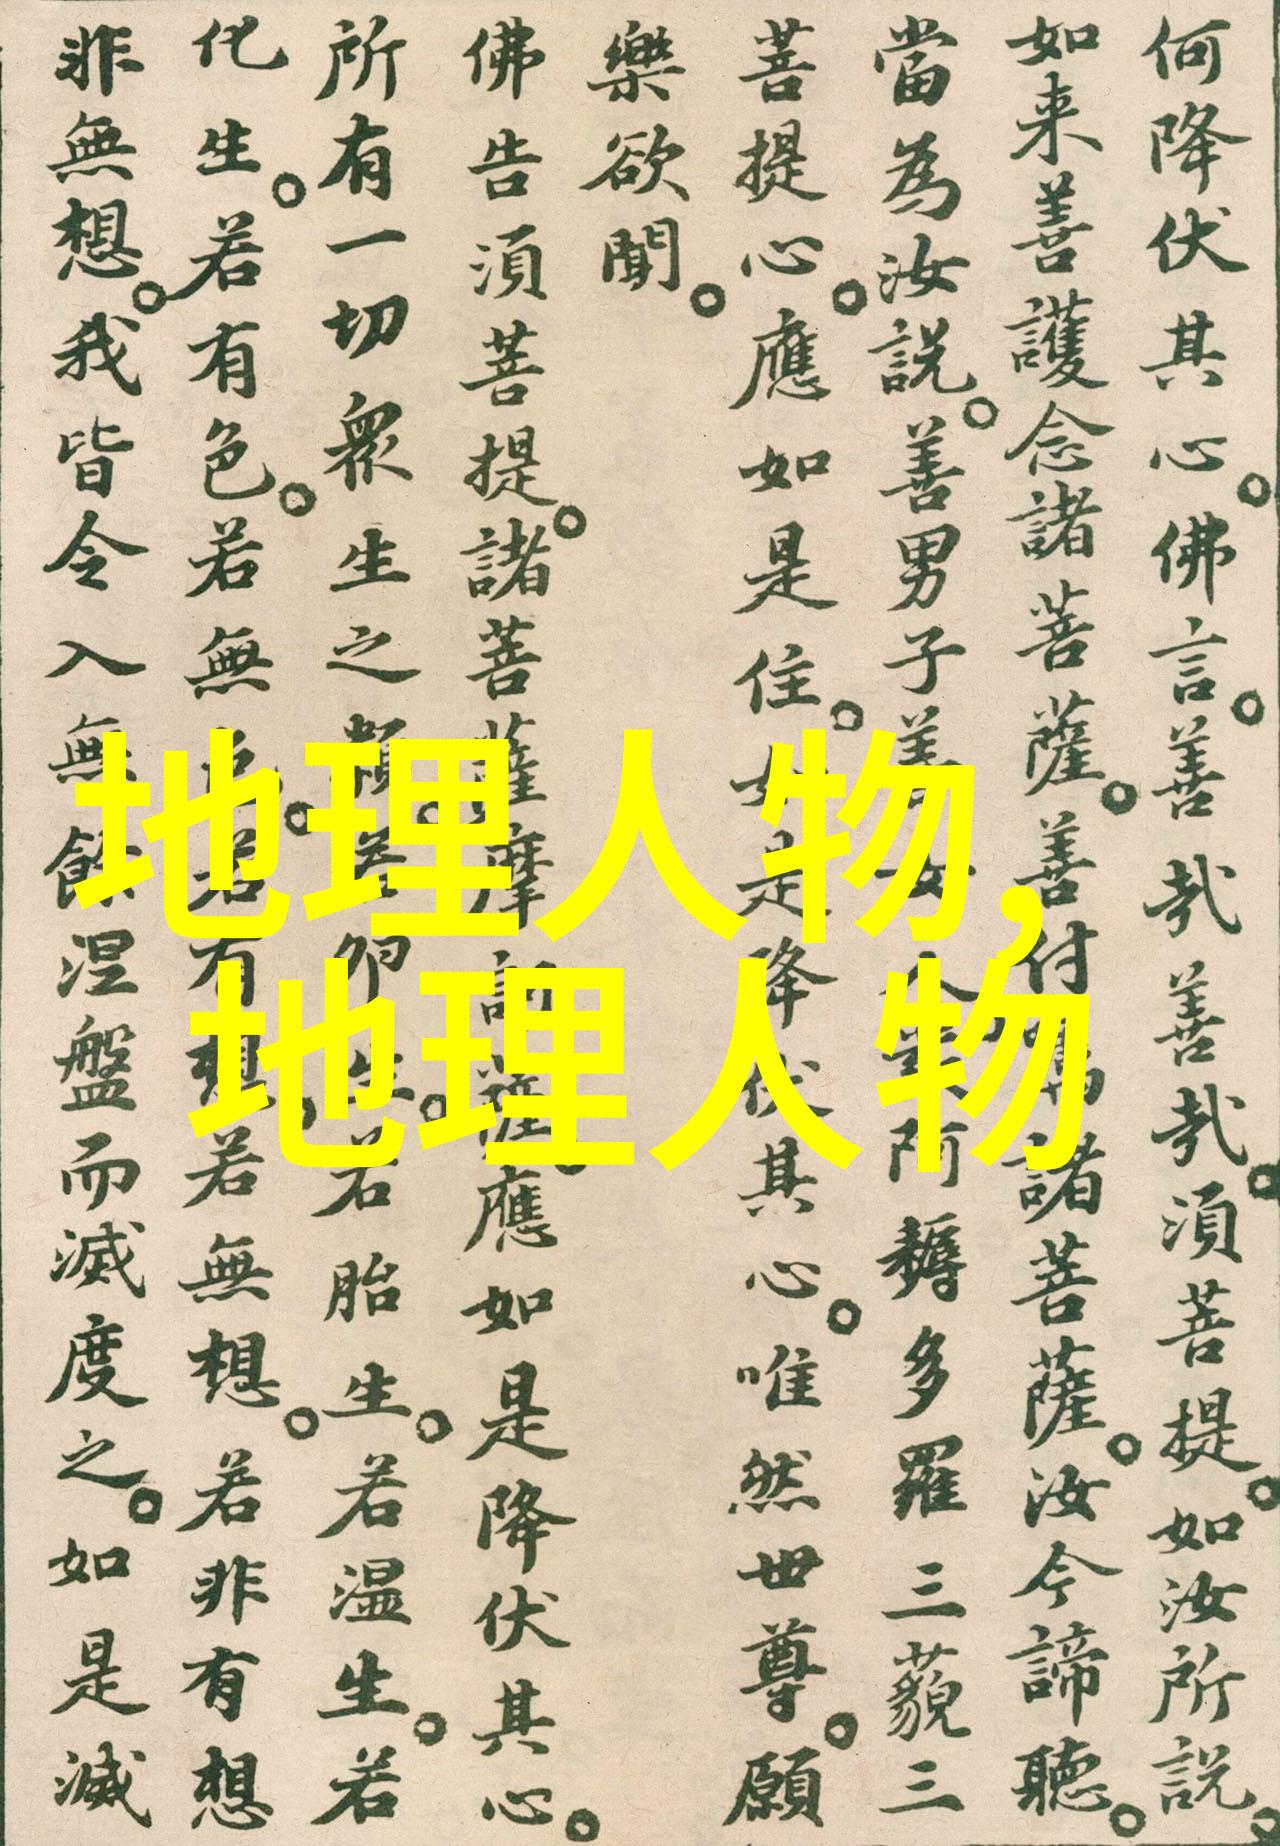 何降伏其心。佛言。善哉善哉。須菩提。如汝所說。
如来善護念諸菩薩。善付囑諸菩薩。汝今諦聽。
當為汝説。善男子善女人發阿耨多羅三藐三
菩提心。應如是住。如是降伏其心。唯然世尊。願
樂欲聞。
佛告須菩提。諸菩薩摩訶薩。應如是降伏其心。
所有一切衆生之類。若卵生。若胎生。若温生。若
化生。若有色。若無色。若有想。若無想。若非有想
非無想。我皆令入無餘涅盤而滅度之。如是滅
地理人物,
地理人物